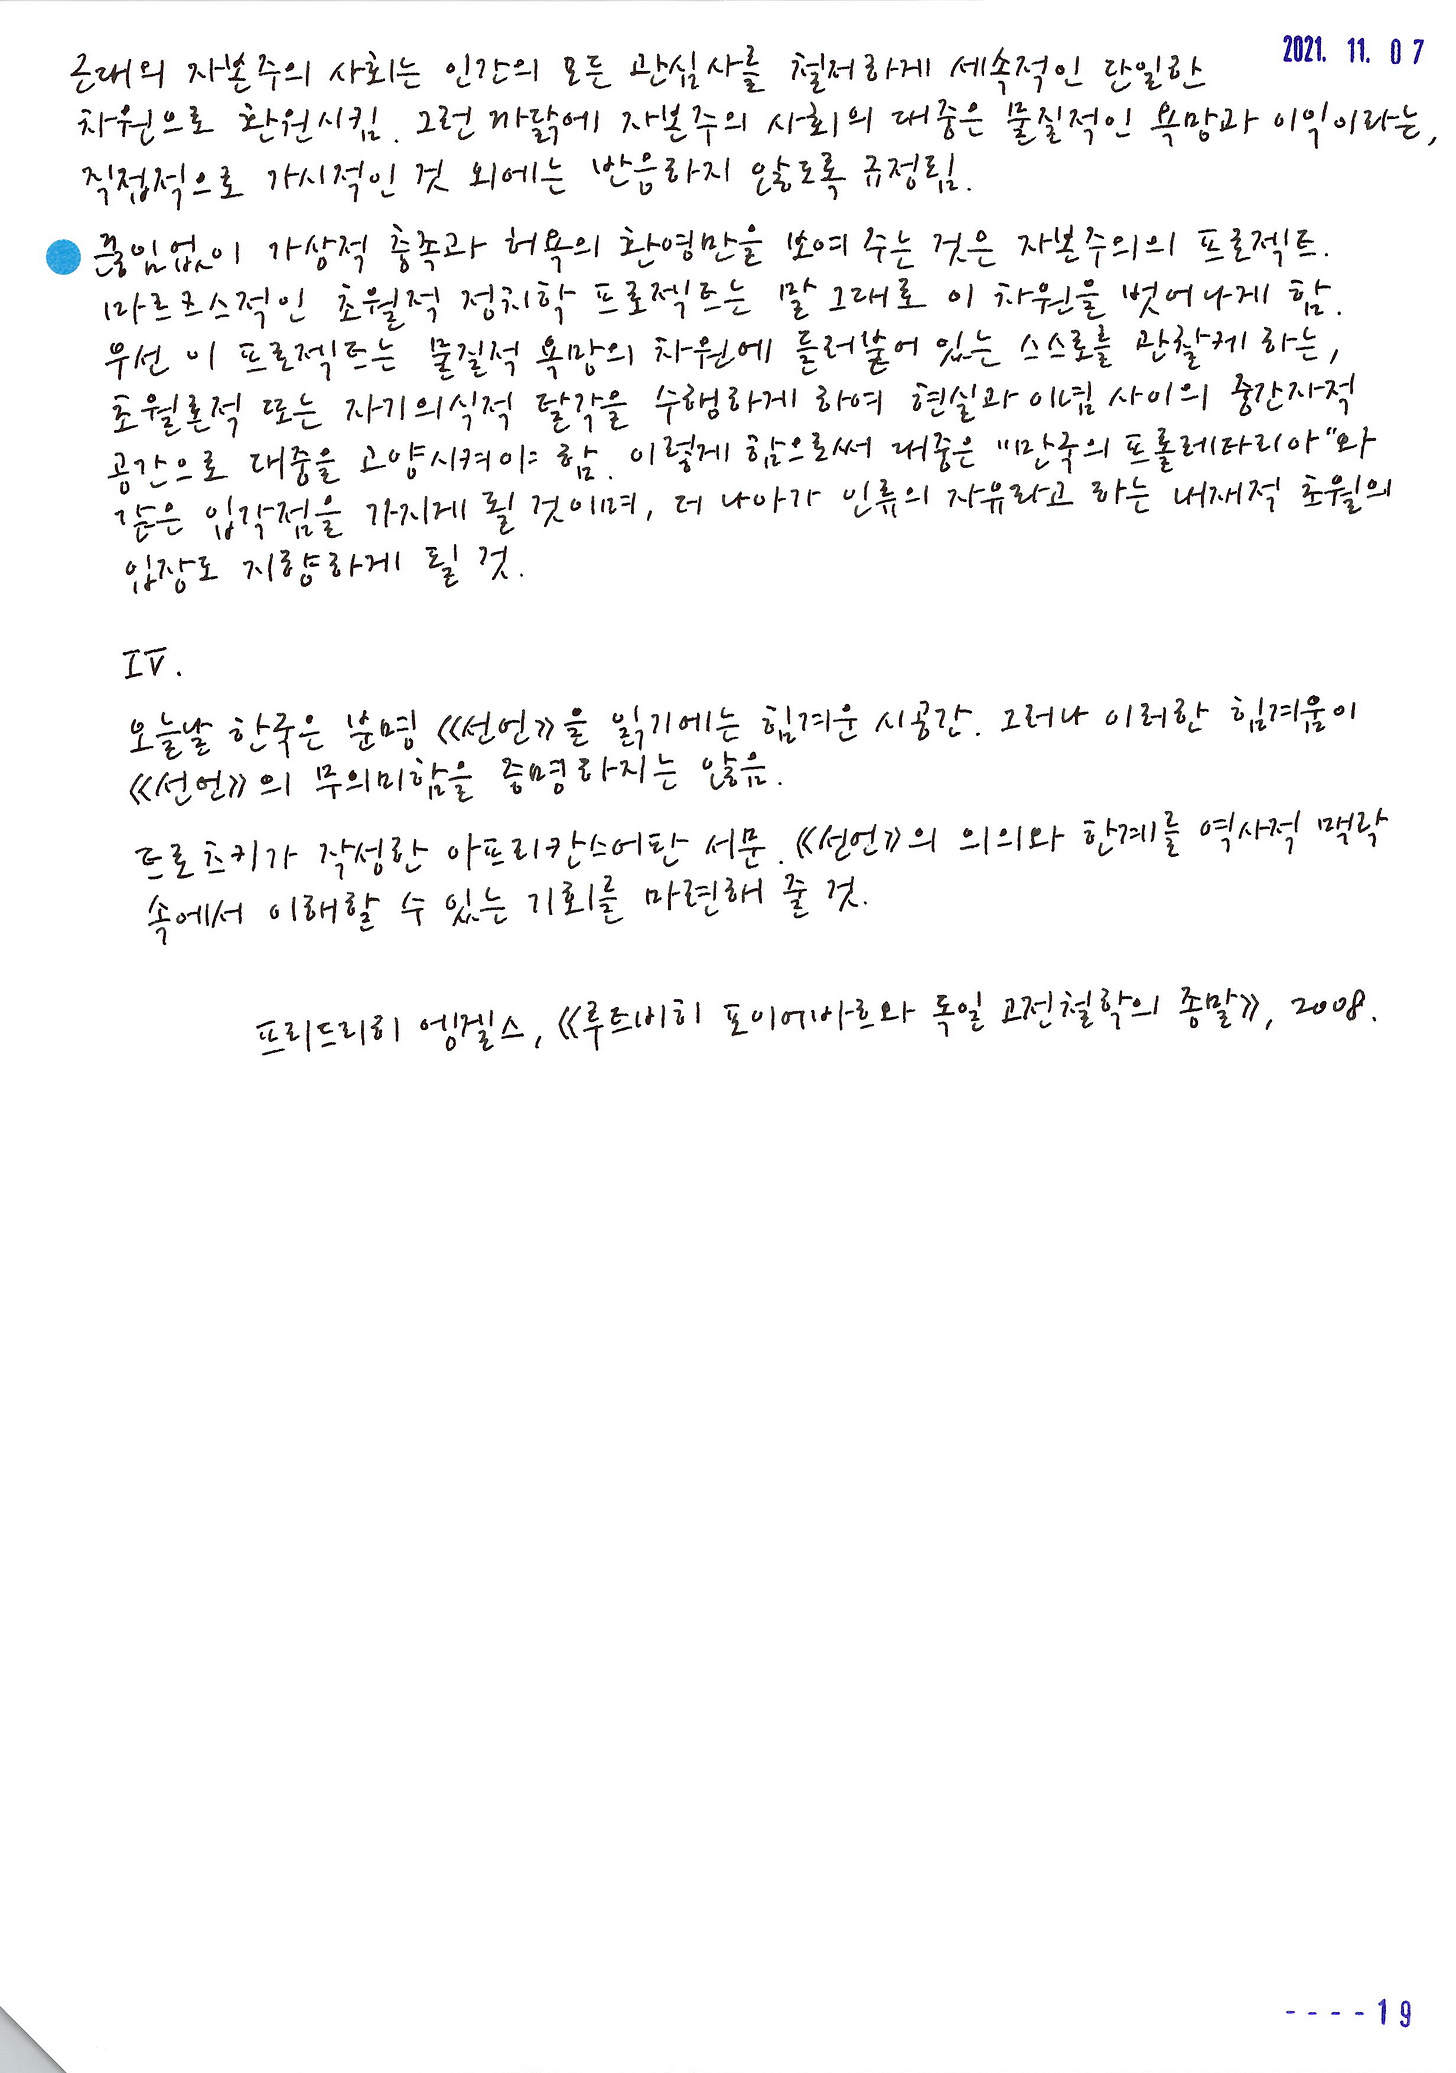 2021. 11. 07
근대의 자본주의 사회는 인간의 모든 관심사를 철저하게 세속적인 단일한
차원으로 환원시킴. 그런 까닭에 자본주의 사회의 대중은 물질적인 욕망과 이익이라는,
직접적으로 가시적인 것 외에는 반응하지 않도록 규정됨.
끊임없이 가상적 충족과 허욕의 환영만을 보여 주는 것은 자본주의의 프로젝트.
마르크스적인 초월적 정치학 프로젝트는 말 그대로 이 차원을 벗어나게 함.
우선 이 프로젝트는 물질적 욕망의 차원에 들러붙어 있는 스스로를 관찰케 하는,
초월론적 또는 자기의식적 자각을 수행하게 하여 현실과 이념 사이의 중간자적
공간으로 대중을 고양시켜야 함. 이렇게 함으로써 대중은 "만국의 프롤레타리아"와
같은 입각점을 가지게 될 것이며, 더 나아가 인류의 자유라고 하는 내재적 초월의
입장도 지향하게 될 것.
IV.
오늘날 한국은 분명 《선언》을 읽기에는 힘겨운 시공간. 그러나 이러한 힘겨움이
《선언》의 무의미함을 증명하지는 않음.
트로츠키가 작성한 아프리칸스어판 서문. 《선언》의 의의와 한계를 역사적 맥락
속에서 이해할 수 있는 기회를 마련해 줄 것.
프리드리히 엥겔스, 《루트비히 포이에바흐와 독일 고전철학의 종말》, 2008.
----19